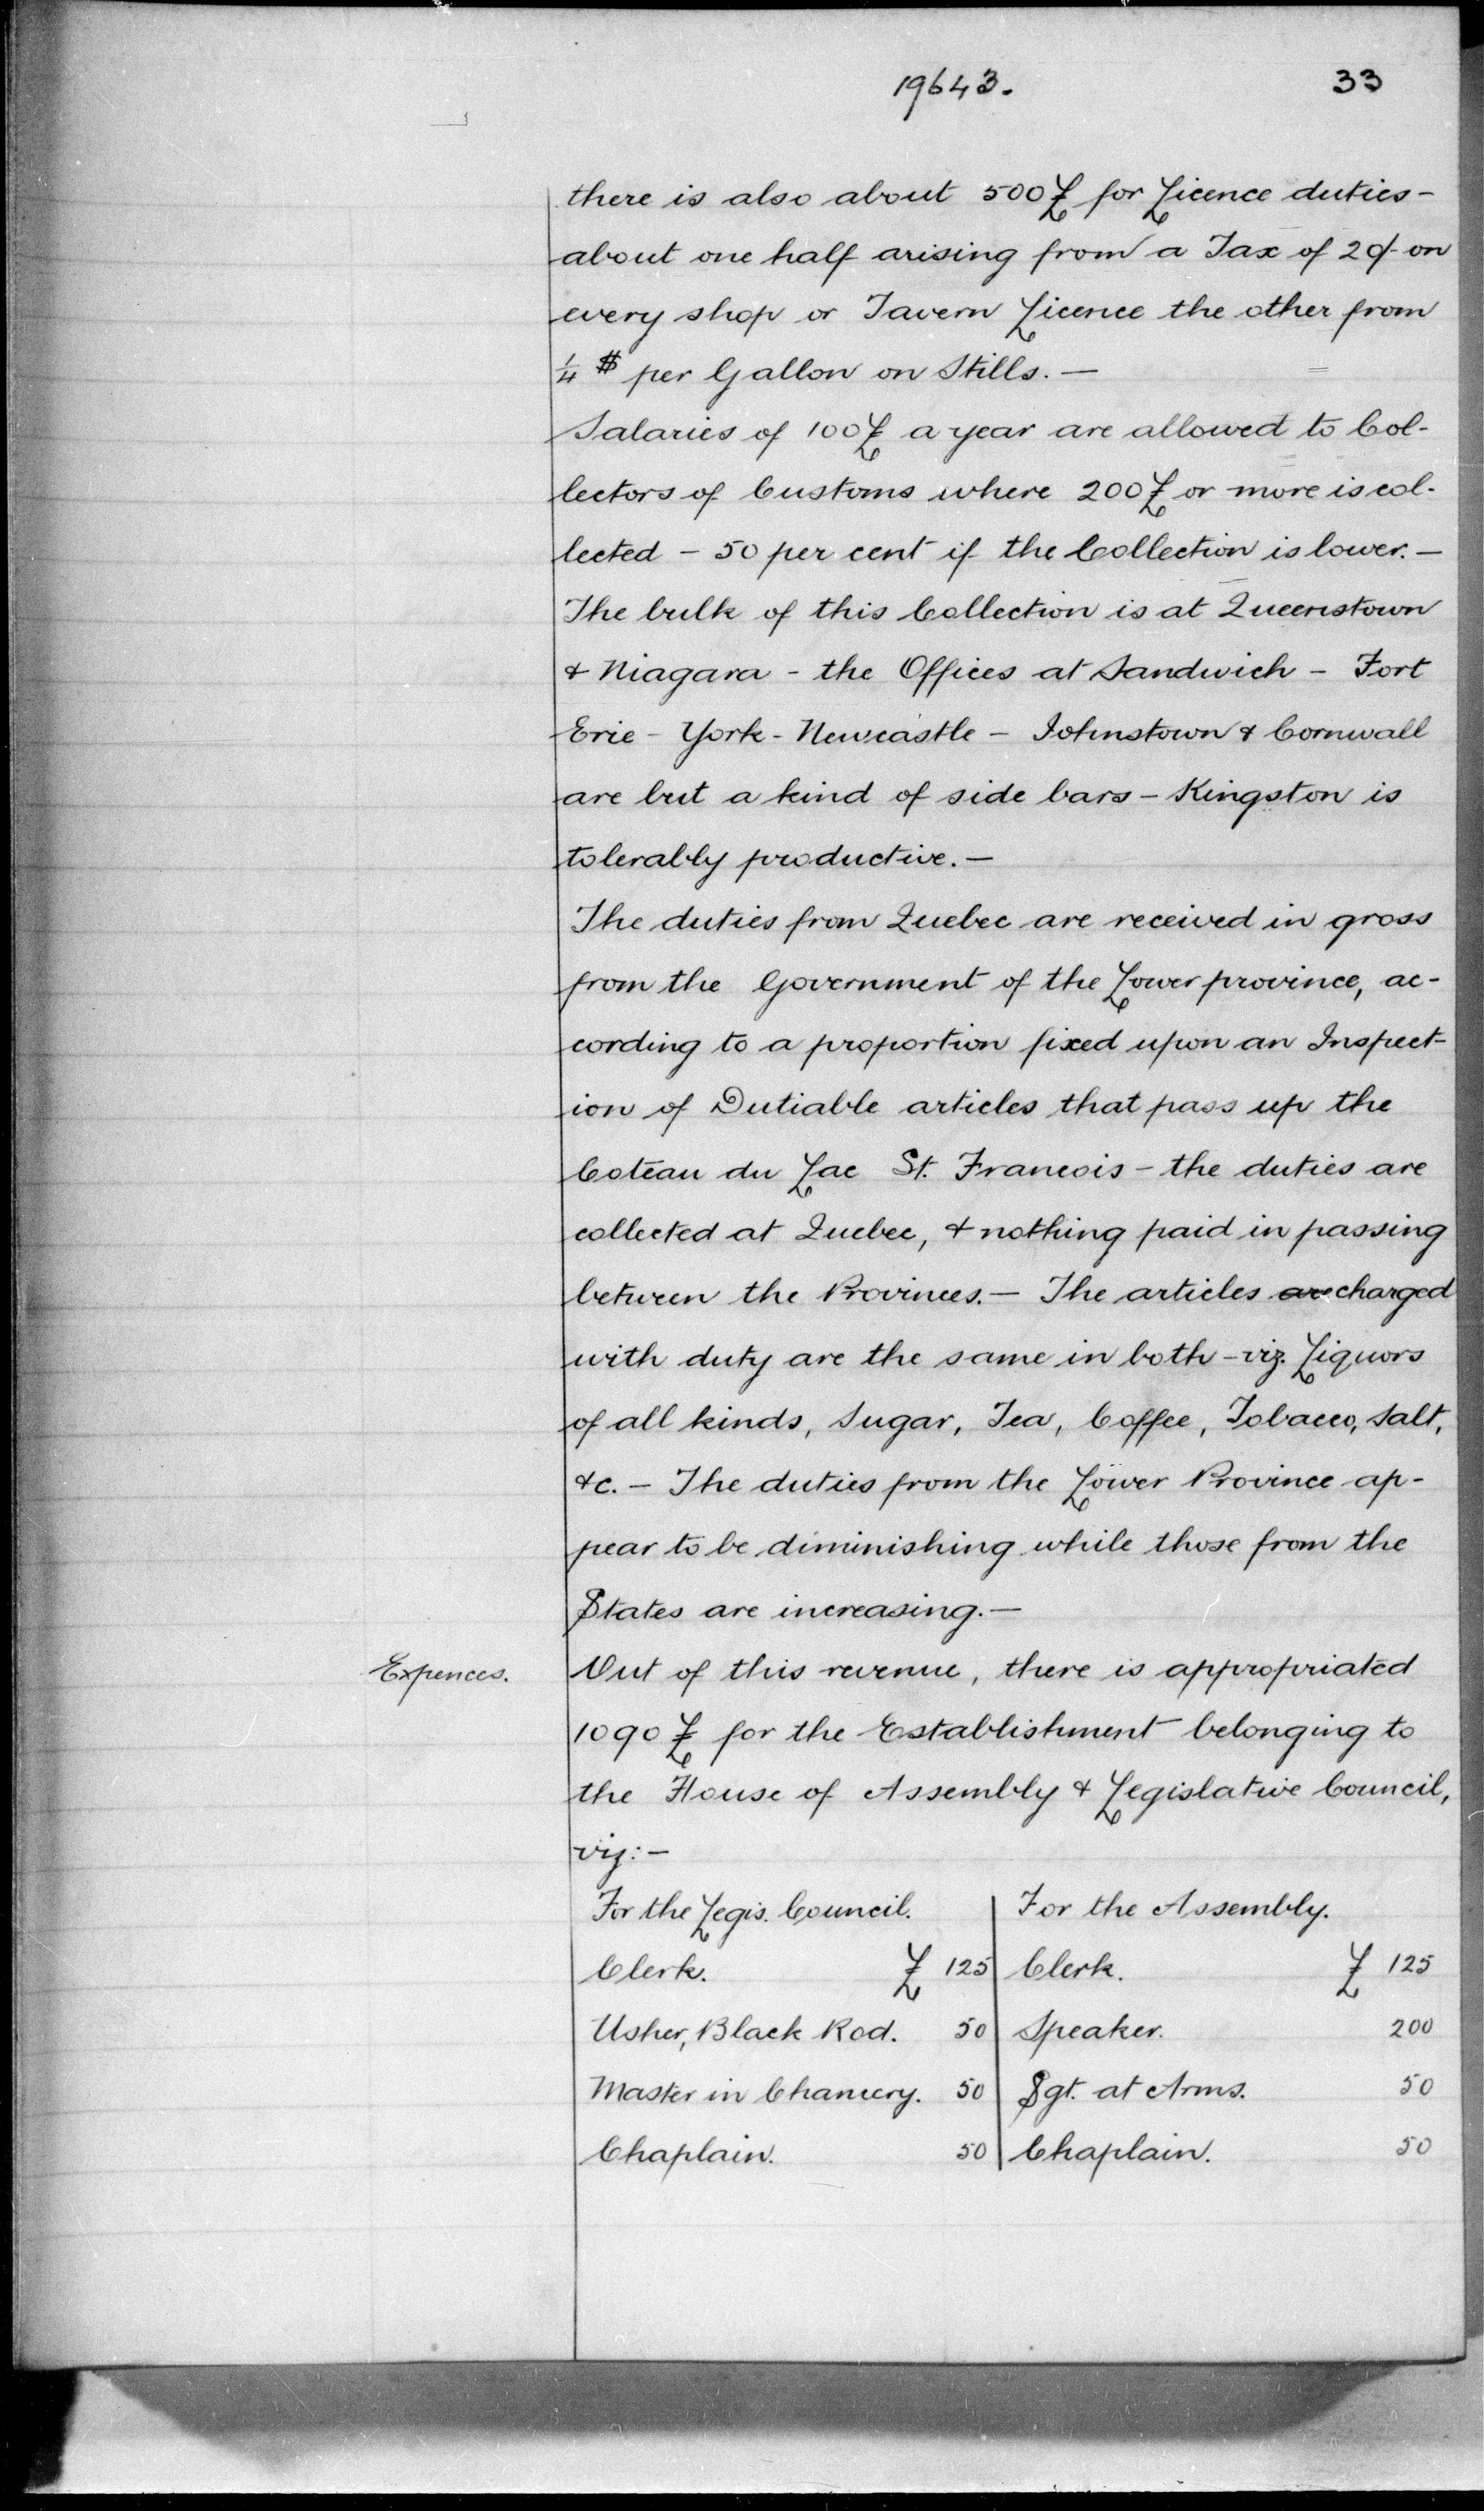 19643.
33
there is also about 500£ for Licence duties -
about one half arising from a Tax of 20/- on
every shop or Tavern Licence the other from
1/4 $ per Gallon on Stills. —
Salaries of 100£ a year are allowed to Col-
lectors of Customs where 200£ or more is col-
lected - 50 per cent if the Collection is lower. —
The bulk of this Collection is at Queenstown
& Niagara - the Offices at Sandwich - Fort
Erie - York - Newcastle - Johnstown & Cornwall
are but a kind of side bars - Kingston is
tolerably productive. —
The duties from Quebec are received in gross
from the Government of the Lower province, ac-
cording to a proportion fixed upon an Inspect-
ion of Dutiable articles that pass up the
Coteau du Lac St. Francois - the duties are
collected at Quebec, & nothing paid in passing
between the Provinces. — The articles are charged
with duty are the same in both - viz. Liquors
of all kinds, Sugar, Tea, Coffee, Tobacco, Salt,
&c. - The duties from the Lower Province ap-
pear to be diminishing while those from the
States are increasing. —
Expences.
Out of this revenue, there is appropriated
1090 £ for the Establishment belonging to
the House of Assembly & Legislative Council,
viz: -
For the Legis. Council. For the Assembly.
Clerk. £ 125 Clerk. £ 125
Usher, Black Rod. 50 Speaker. 200
Master in Chancery. 50 Sgt. at Arms. 50
Chaplain. 50 Chaplain. 50